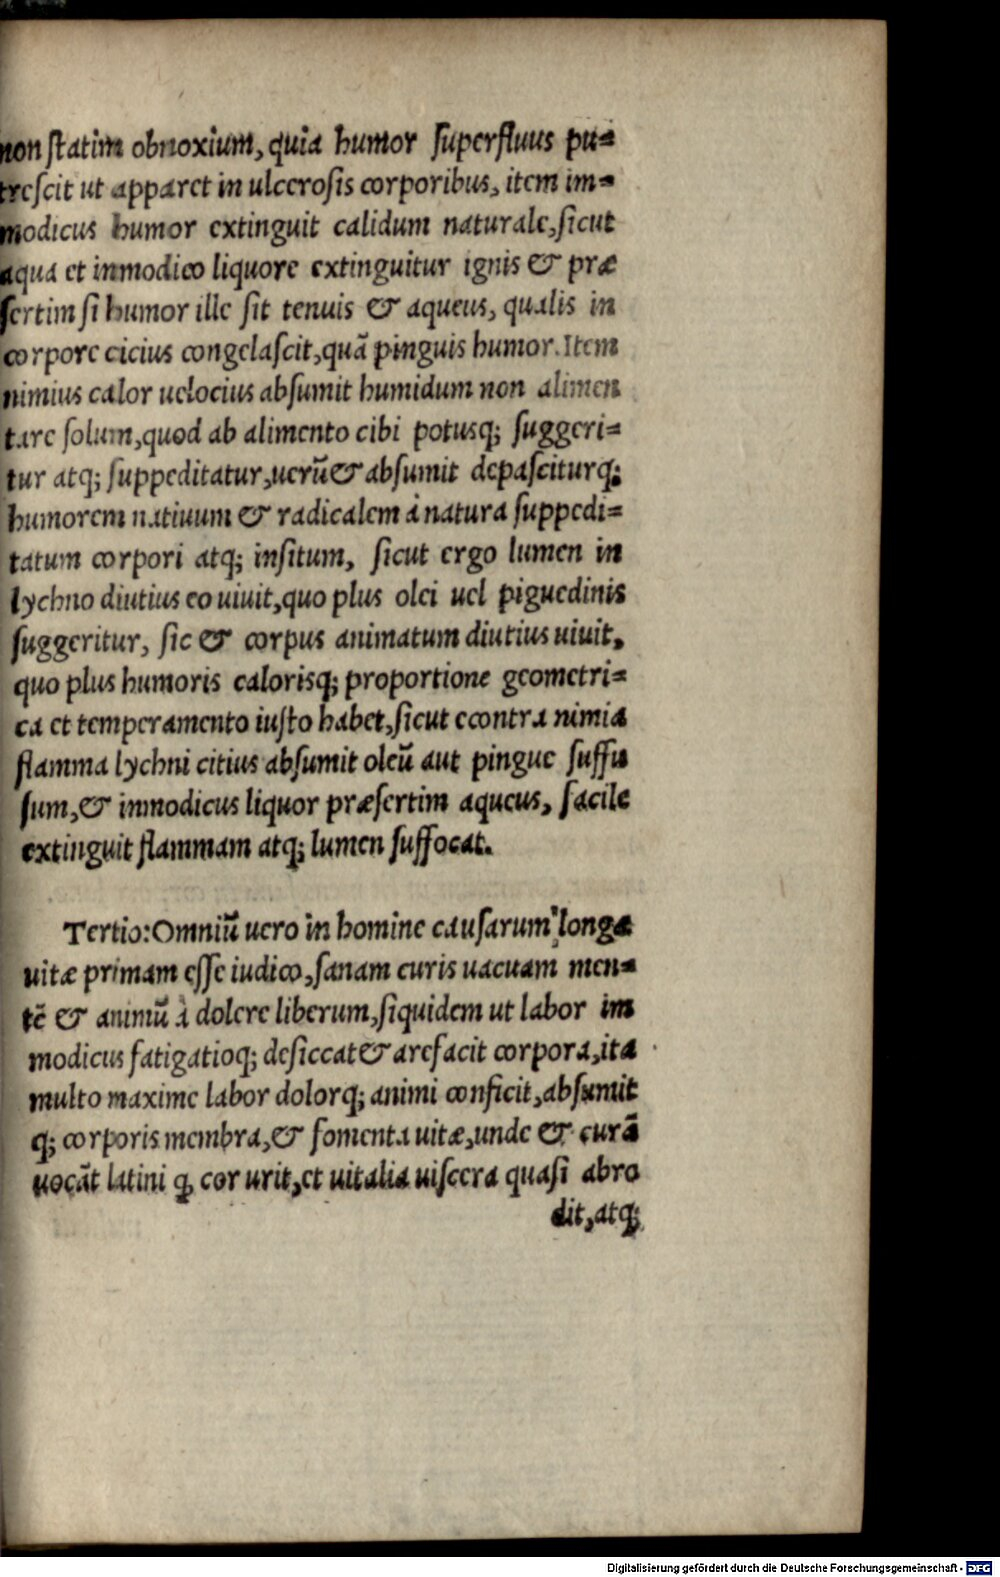 non ſtatim obnoxium, quia humor ſuperfluus pu=
treſcit ut apparet in ulceroſis corporibus, item im=
modicus humor extinguit calidum naturale, ſicut
aqua et inmodico liquore extinguitur ignis & præ
ſertim ſi humor ille ſit tenuis & aqueus, qualis in
corpore cicius congelaſcit, quã pinguis humor. Item
nimius calor uelocius abſumit humidum non alimen
tare ſolum, quod ab alimento cibi potusq; ſuggeri=
tur atq; ſuppeditatur, uerũ & abſumit depaſciturq;
humorem natiuum & radicalem à natura ſuppedi=
tatum corpori atq; inſitum, ſicut ergo lumen in
lychno diutius eo uiuit, quo plus olei uel piguedinis
ſuggeritur, ſic & corpus animatum diutius uiuit,
quo plus humoris calorisq; proportione geometri=
ca et temperamento iuſto habet, ſicut econtra nimia
flamma lychni citius abſumit oleũ aut pingue ſuffu
ſum, & inmodicus liquor præſertim aqueus, facile
extinguit flammam atq; lumen ſuffocat.
Tertio: Omniũ uero in homine cauſarum longæ
uitæ primam eſſe iudico, ſanam curis uacuam men=
tẽ & animũ à dolere liberum, ſiquidem ut labor im
modicus fatigatioq; deſiccat & arefacit corpora, ita
multo maxime labor dolorq; animi conficit, abſumit
q; corporis membra, & fomenta uitæ, unde & curã
uocãt latini ꝙ cor urit, et uitalia uiſcera quaſi abro
dit, atq;
Digitalisierung gefördert durch die Deutsche Forschungsgemeinschaft - DFG